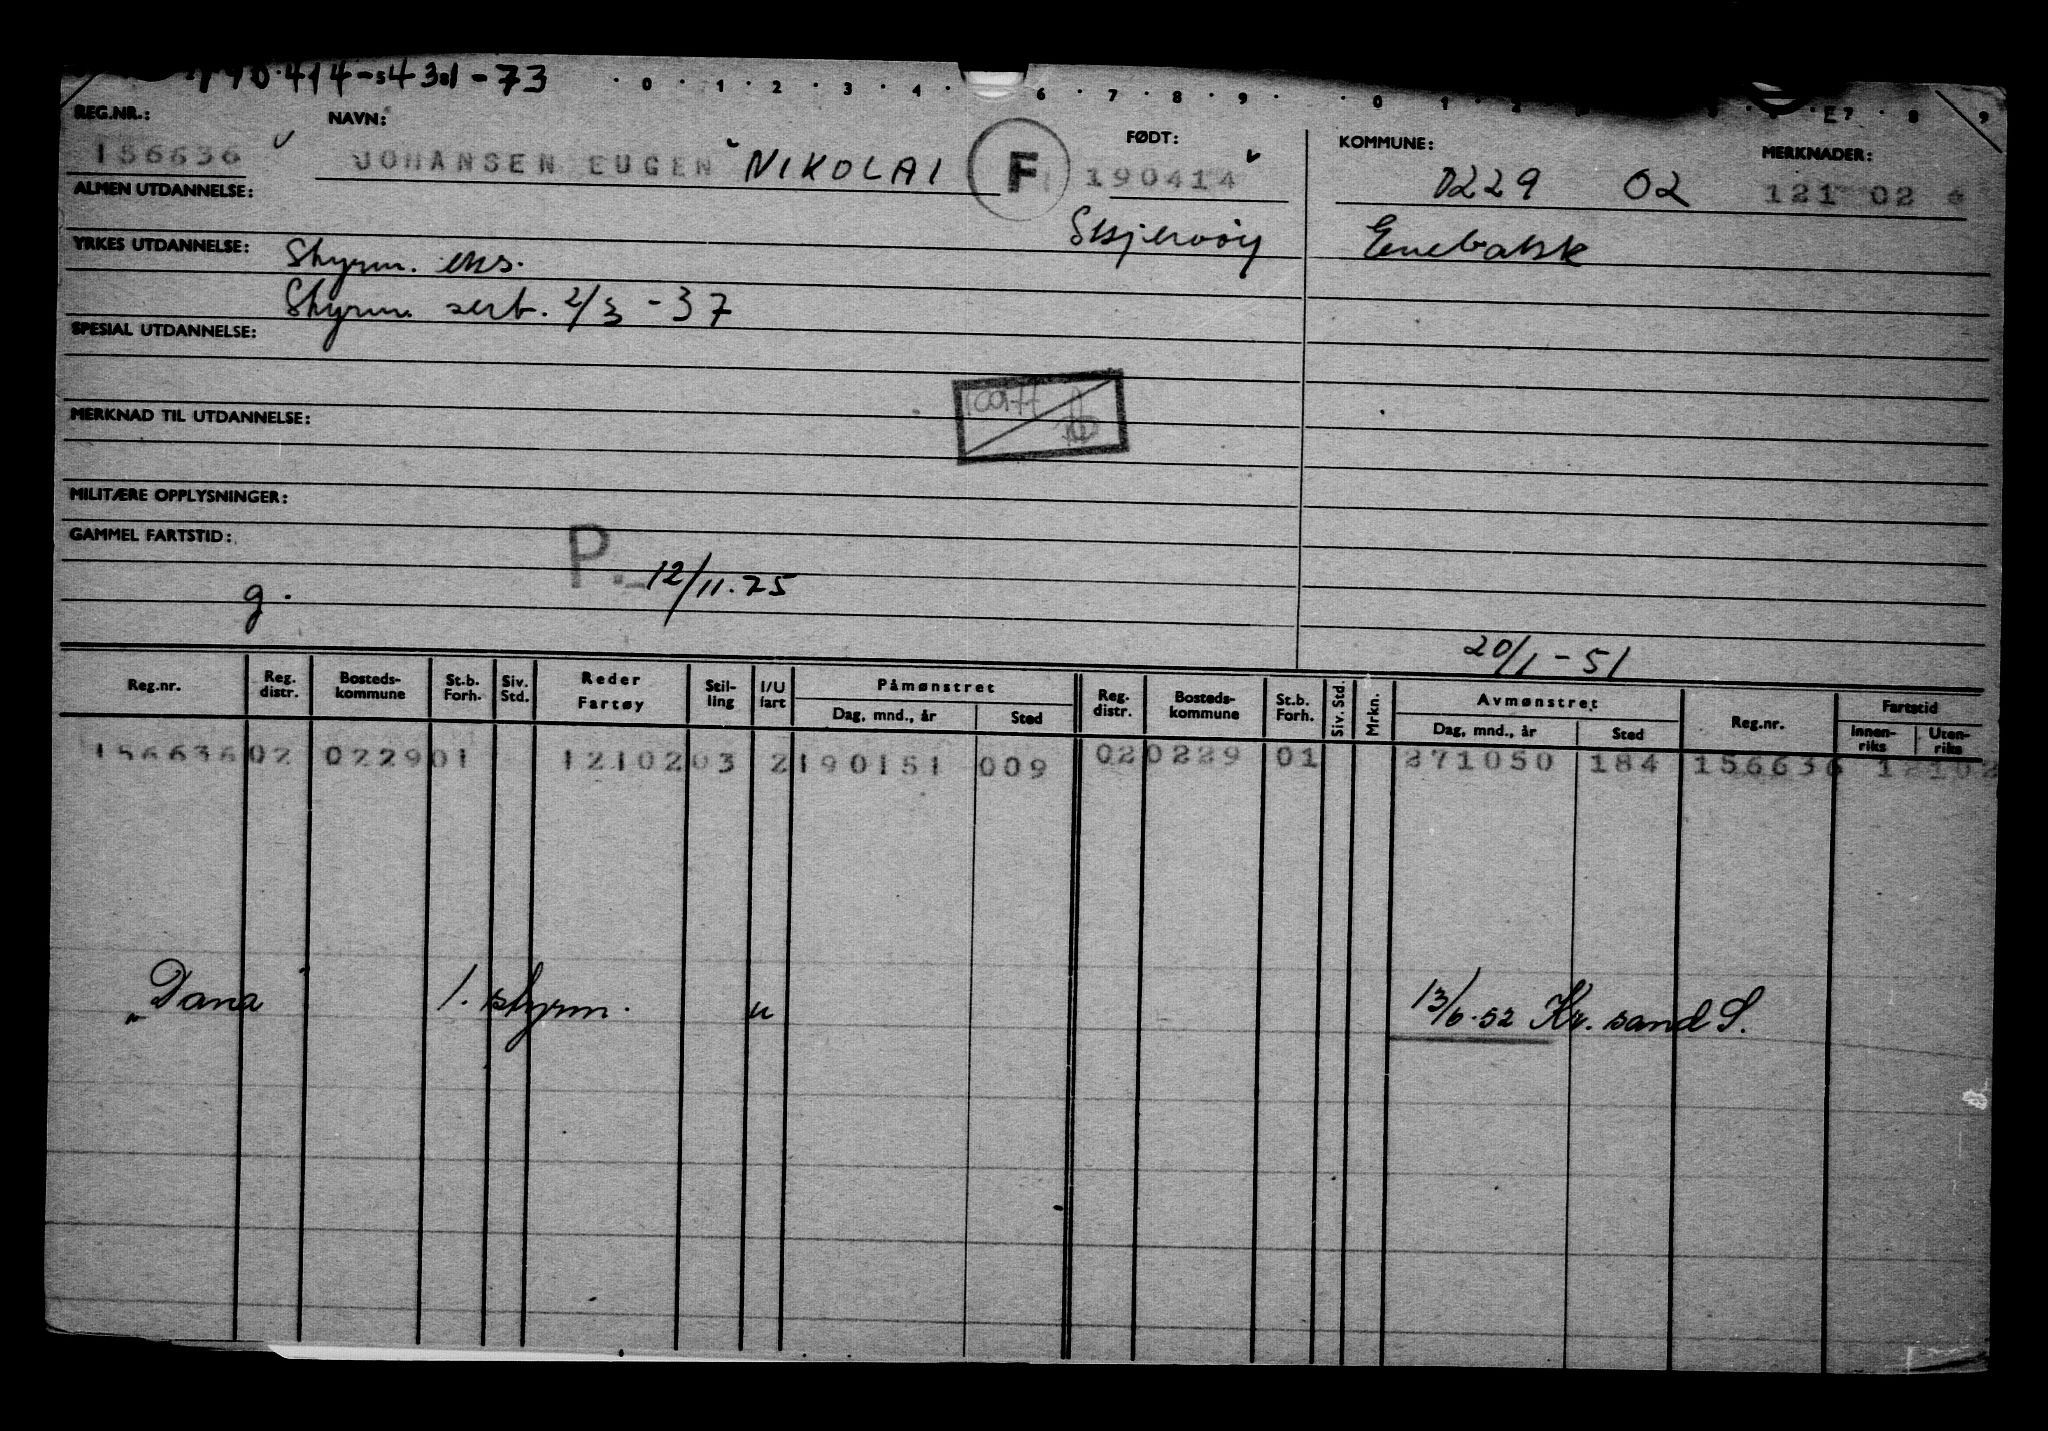 190.414-431-73
0 1 2 3 4 6 7 8 9 0 1 2 E7 8 9
REG.NR.: NAVN: FØDT: KOMMUNE: MERKNADER:
156636 JOHANSEN EUGEN NIKOLAI F 190414 0229 02 121 02
ALMEN UTDANNELSE:
Skjervøy Enebakk
YRKES UTDANNELSE: Styrm. eks.
Styrm. sert. 2/3 - 37
SPESIAL UTDANNELSE:
MERKNAD TIL UTDANNELSE:
MILITÆRE OPPLYSNINGER:
GAMMEL FARTSTID:
P. - 12/11.75
g.
20/1 - 51
Reg.nr. Reg. distr. Bosteds-kommune St.b. Forh. Siv. Std. Reder Fartøy Stil-ling I/U fart Påmønstret Dag, mnd., år Sted Reg. distr. Bosteds-kommune St.b. Forh. Siv. Std. Mrkn. Avmønstret Dag, mnd., år Sted Reg.nr. Fartstid Innen-riks Uten-riks
156636 02 0229 01 12102 03 2 190151 009 02 0229 01 271050 184 156636 12102
"Dana 1. styrm. u 13/6.52 Kr. sand S.